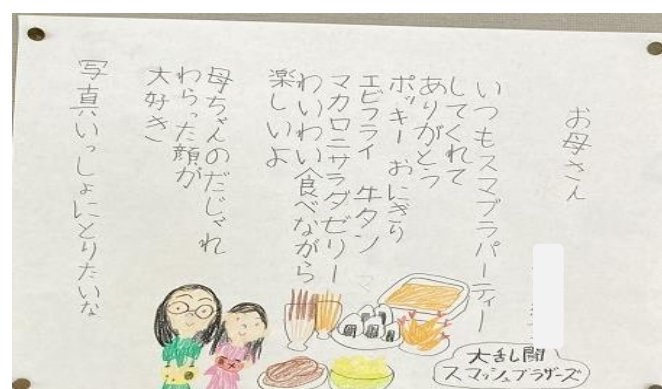 お母さん
いつもスマブラパーティー
してくれて
ありがとう
ポッキー おにぎり
エビフライ 牛タン
マカロニサラダゼリー
わいわい食べながら
楽しいよ
母ちゃんのだじゃれ
わらった顔が
大好き
写真いっしょにとりたいな
大乱闘
スマッシュブラザーズ